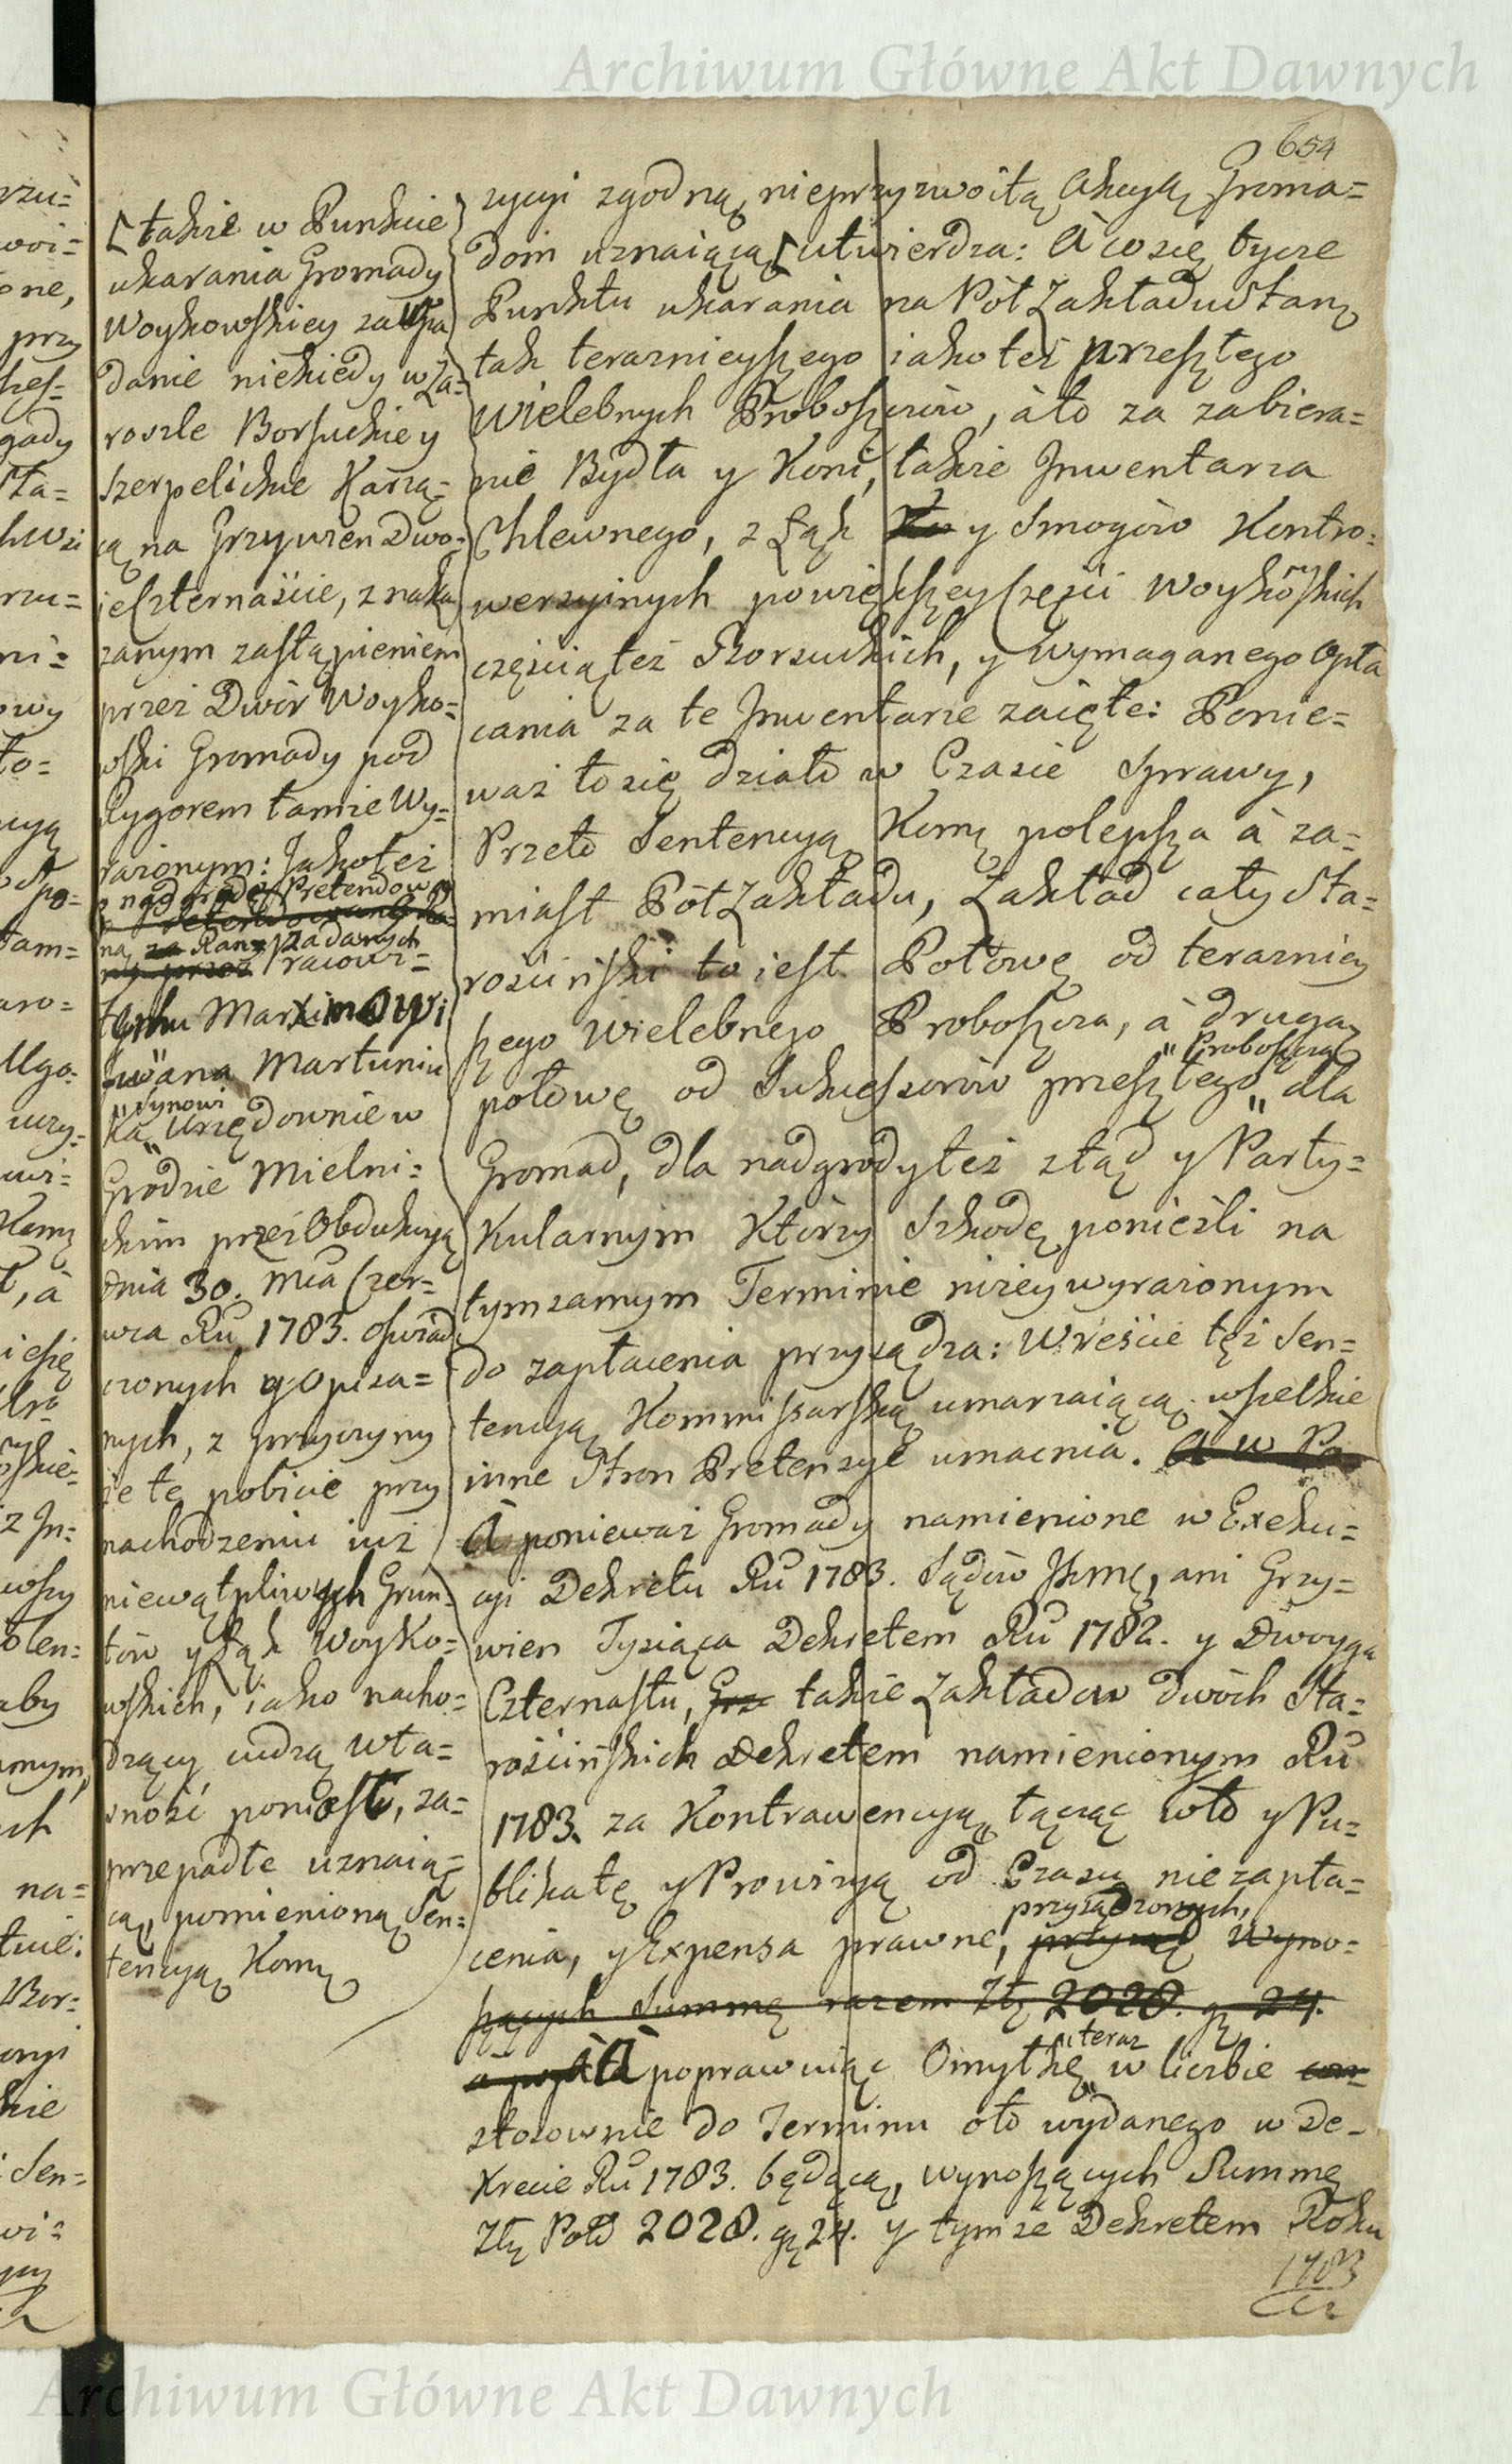 Archiwum Główne Akt Dawnych
654
[takze w Punkcie
ukarania Gromady
Woykowskiey za
danie niekiedy w Za=
roszle Borsuckiey
Szerpelickie Karzą=
cą na Grzywien Dwo=
ie Czternaście, z naka
zanym zastąpieniem
przez Dwór Woyko=
wski Gromady pod
Rygorem tamże Wy=
rażonym: Jako też
nadgrodę Pretendowa
na za Rany zadanych
Maxymowi
Iwana Martuniu
"Synowi
ka" Urzędownie w
Grodzie Mielni=
ckim przez Obdukcyą
dnia 30. Mca Czer=
wca Ru 1783. oświad
czonych y Opisa=
nych, z przyczyny
że te pobicie przy
nachodzeniu już
niewątpliwych Grun=
tów y Łąk Woyko=
wskich, iako nacho=
dzący cudzą wła=
sność poniosł, za=
przepadłe uznaią=
cą, pomienioną Sen=
tencyą Komę
zycyi zgodną, nieprzyzwoitą Akcyą Groma=
dom uznaiącą [utwierdza: A co się tycze
Punktu ukarania na Pół Zakładu Starę
tak terazniejszego iako też przeszłego
Wielebnych Proboszczów, à to za zabiera=
nie Bydła y Koni, także Jnwentarza
Chlewnego, z Łąk y Smogów Kontro=
wersyinych powiększey Części Woykowskich
częścią też Borsuckich, y Wymaganego Opła
cania za te Jnwentarze zaięte: Ponie=
waż to się działo w Czasie Sprawy,
Przeto Sentencyą Komę polepsza à za=
miast Pół Zakładu, Zakład cały Sta=
rościński to iest Połowę od teraźniey
szego Wielebnego Proboszcza, à drugą
"Proboszcza
połowę od Sukcessorów przeszłego" dla
Gromad, dla nadgrody też ztąd y Party=
Kularnym Którzy Szkodę ponieśli na
tymzamym Terminie niżey wyrażonym
do zapłacenia przysądza: Wreście też Sen=
tencyą Kommissarską umarzaiącą wszelkie
inne Stron Pretensye umacnia. A w Po
A ponieważ Gromady namienione w Exeku=
cyi Dekretu Ru 1783. Sądów Jkmę, ani Grzy=
wien Tysiąca Dekretem Ru 1782. y Dwoyga
Czternastu, Grz także Zakładow dwóch Sta=
rościńskich Dekretem namienionym Ru
1783. za Kontrawencyą, łącząc w to y Pu=
blikatę y Prowizyą od Czasu niezapła=
przysądzonych,
cenia, y Expensa prawne, Wyno=
szących Summę razem Złł 2028. gr 24.
"teraz
à poprawuiąc Omyłkę" w liczbie
stosownie do Terminu oto wydanego w De=
krecie Ru 1783. będącą, wynoszących Summę
Złł Pold 2028. gr 24. y tymże Dekretem Roku
1783
Archiwum Główne Akt Dawnych